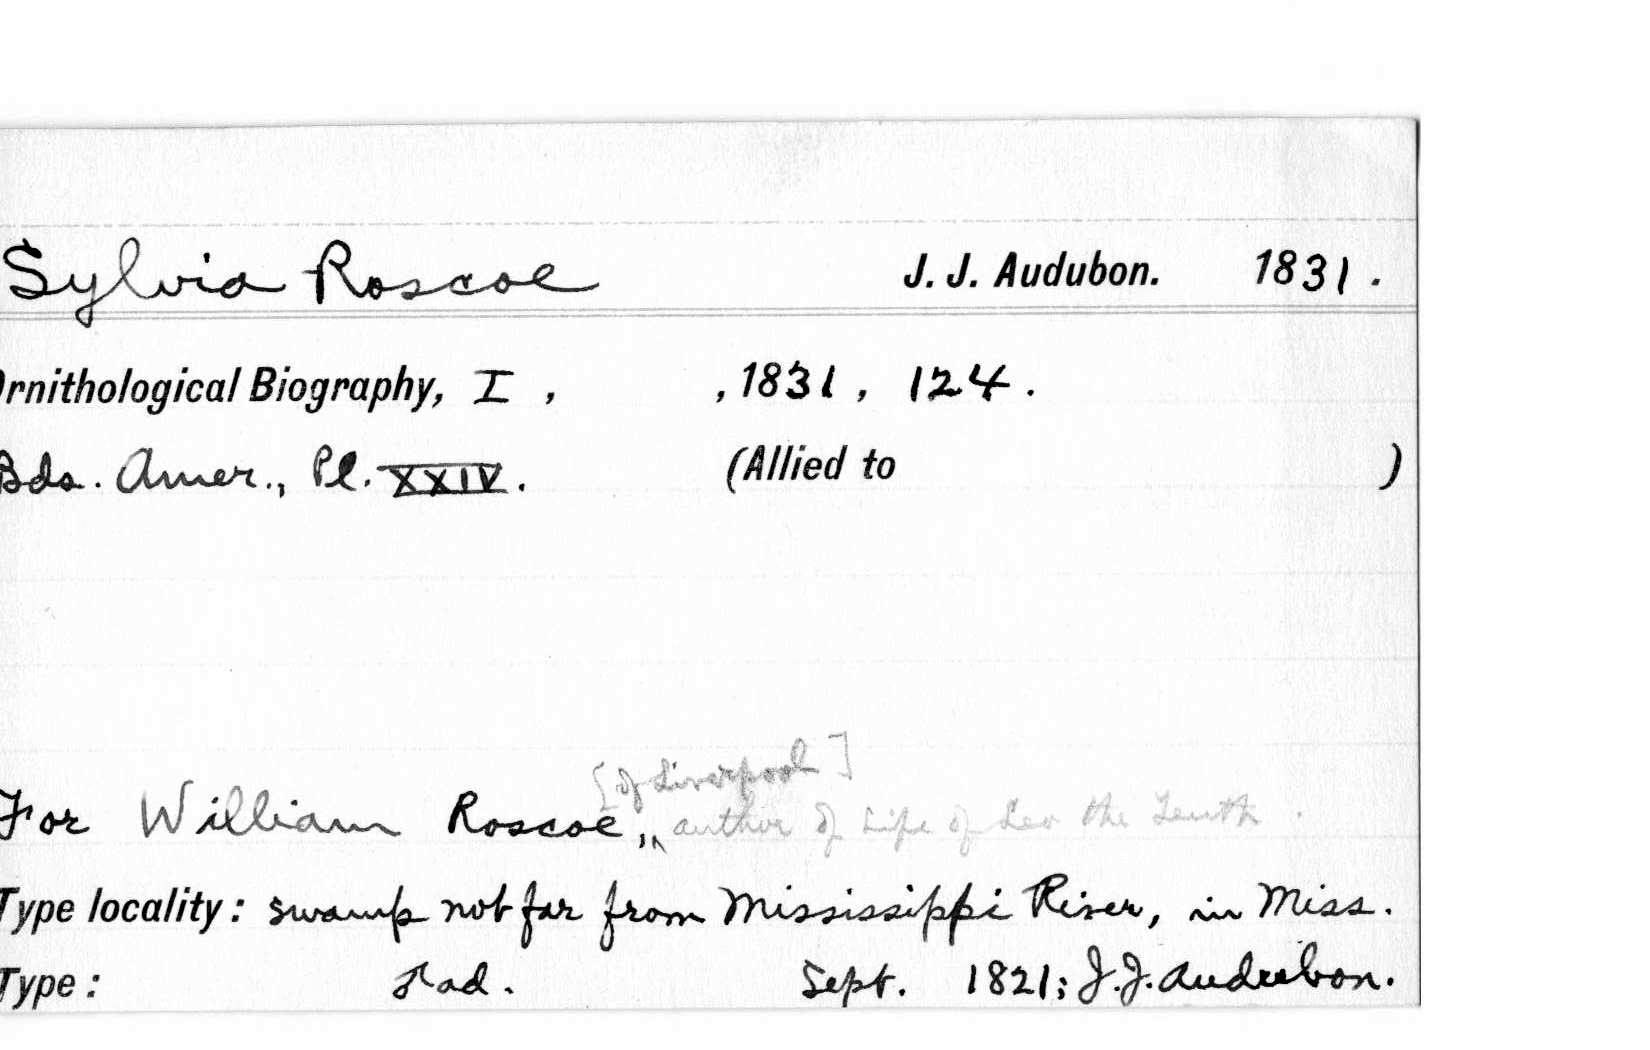 Sylvia Roscoe J. J. Audubon. 1831.
Ornithological Biography, I, , 1831, 124.
Bds. Amer., Pl. XXIV. (Allied to )
[of Liverpool]
For William Roscoe,^ author of Life of Leo the Tenth.
Type locality: swamp not far from Mississippi River, in Miss.
Type: Sept. 1821; J.J. Audubon.